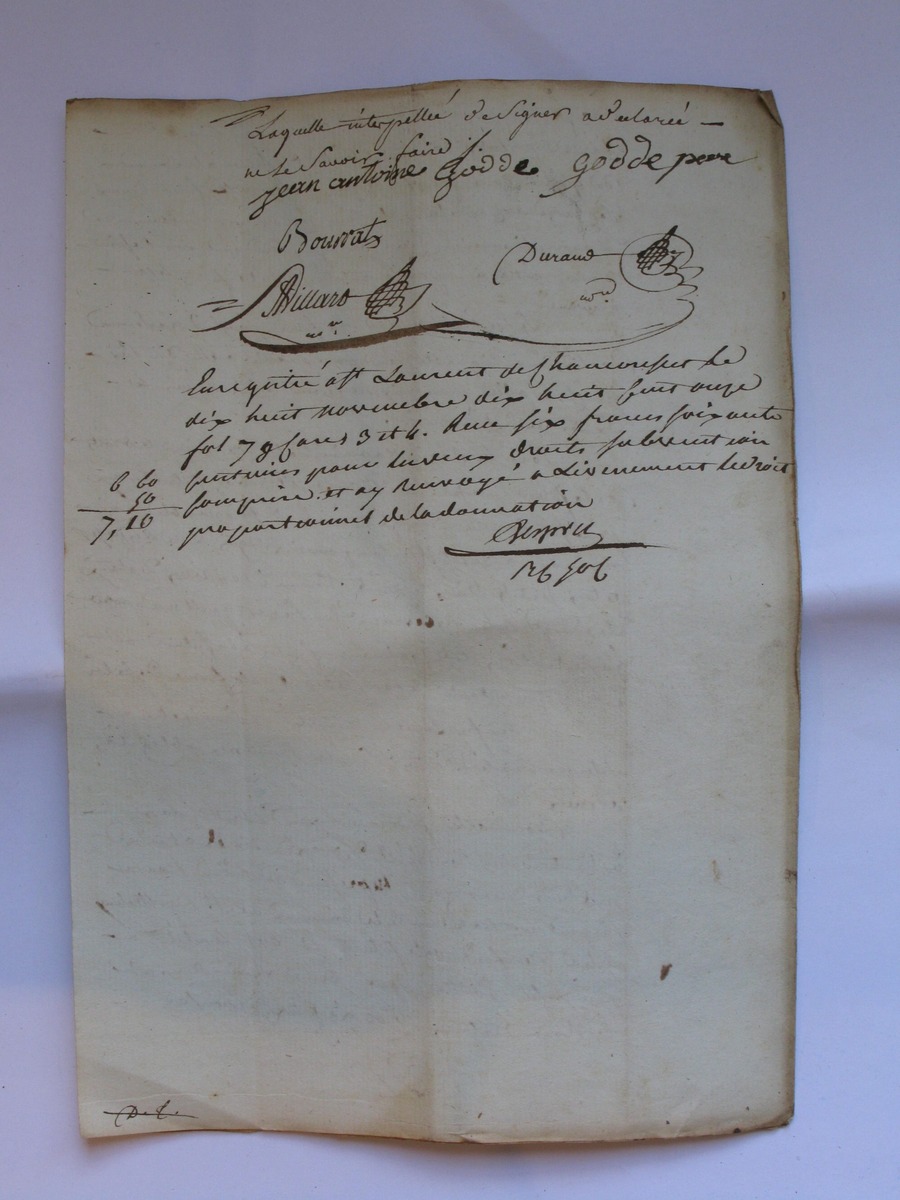 Laquelle interpellée de Signer a declarée —
ne le Savoir faire /.
jean antoine Godde godde pere
Bourrat
Durand
nore
Villard
nore
Enregistré a St Laurent de Chamousset le
dix huit novembre dix huit cent onze
fol 78 Cases 3 et 4. Recu six francs soixante
centimes pour divers droits subvention
comprise et ay Renvoyé a L'évenement le droit
proportionnel de la donnation
6 60
50
7,10
D. L.